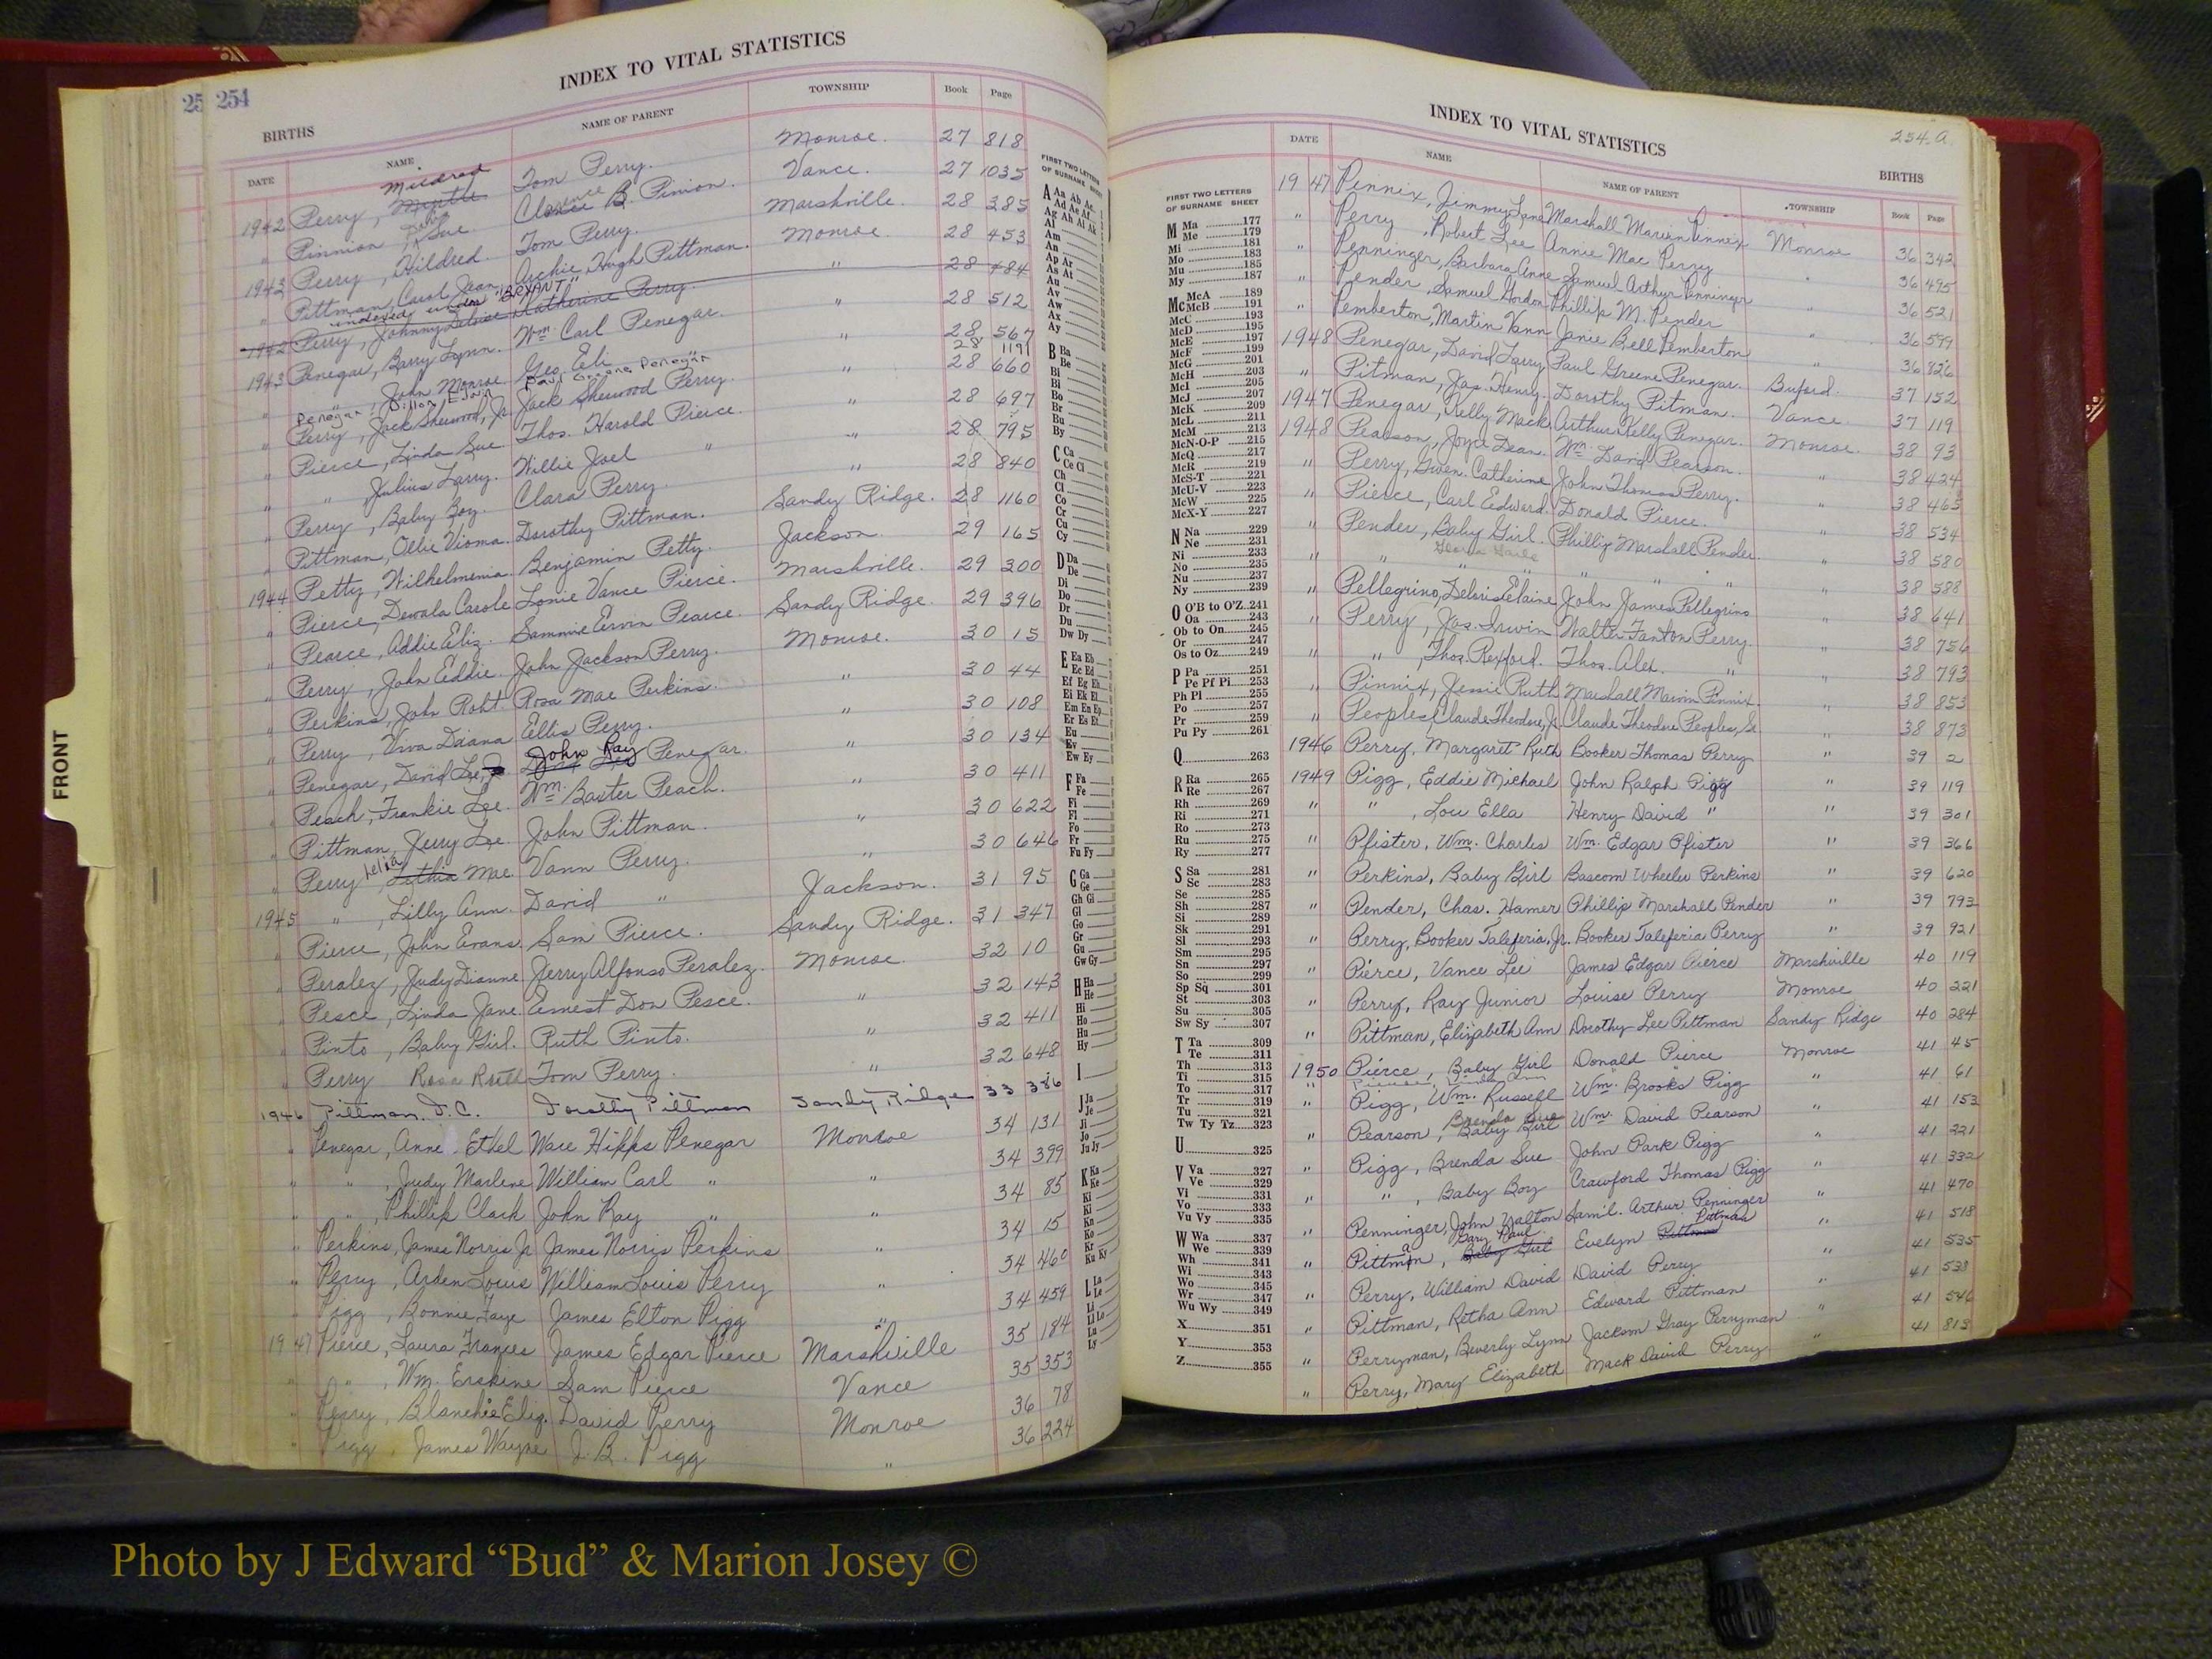 25 254
INDEX TO VITAL STATISTICS
BIRTHS
DATE NAME NAME OF PARENT TOWNSHIP Book Page
Mildred
1942 Perry, Myrtle Tom Perry. Monroe. 27 818
" Pinnion, Sue Clarence B. Pinion. Vance. 27 1035
1943 Perry, Hildred. Tom Perry. Marshville. 28 285
" Pittman, Carol Jean Archie Hugh Pittman. Monroe 28 453
indexed under "BRYANT"
1942 Perry, Johnny Katherine Perry. " 28 484
1943 Penegar, Barry Lynn. Wm. Carl Penegar. " 28 512
" " , John Monroe Geo. Eli " 28 567
Penegar, Dillon Edwin Paul Greene Penegar 28 1191
" Perry, Jack Sherwood, Jr. Jack Sherwood Perry. " 28 660
" Pierce, Linda Sue Thos. Harold Pierce. " 28 697
" " , Julius Larry. Willie Joel " " 28 795
" Perry, Baby Boy. Clara Perry. " 28 840
" Pittman, Ollie Dorothy Pittman. Sandy Ridge. 28 1160
1944 Petty, Wilhelmenia Benjamin Petty. Jackson. 29 165
" Pierce, Carole Lonie Vance Pierce. Marshville. 29 300
" Pearce, Addie Eliz. Sammie Ervin Pearce. Sandy Ridge. 29 396
" Perry, John Eddie. John Jackson Perry. Monroe. 30 15
" Perkins, John Robt Rosa Mae Perkins. " 30 44
" Perry, Viva Diana Ellis Perry. " 30 108
" Penegar, David Lee, Jr. John Ray Penegar. " 30 134
" Peach, Frankie Lee. Wm. Baxter Peach. " 30 411
" Pittman, Jerry Lee. John Pittman. " 30 622
" Perry Lelia Mae Vann Perry. " 30 646
1945 " , Lilly Ann. David " Jackson. 31 95
" Pierce, John Evans. Sam Pierce. Sandy Ridge. 31 347
" Peralez, Judy Dianne. Jerry Alfonso Peralez. Monroe. 32 10
" Pesce, Linda Jane Ernest Don Pesce. " 32 143
" Pinto, Baby Girl. Ruth Pinto. " 32 411
" Perry Rosa Ruth Tom Perry. " 32 648
1946 Pittman, J.C. Dorothy Pittman Sandy Ridge 33 386
" Penegar, Anne Ethel Ware Hipps Penegar Monroe 34 131
" " , Judy Marlene William Carl " " 34 399
" " , Phillip Clark John Ray " " 34 85
" Perkins, James Norris Jr James Norris Perkins " 34 15
" Perry, Arden Louis William Louis Perry " 34 460
" Pigg, Bonnie Faye James Elton Pigg " 34 459
1947 Pierce, Laura Frances James Edgar Pierce Marshville 35 184
" " , Wm. Erskine Sam Pierce Vance 35 353
" Perry, Blanchie Eliz. David Perry Monroe 36 78
" Pigg, James Wayne J. B. Pigg " 36 224
FIRST TWO LETTERS
OF SURNAME SHEET
A Aa Ab Ac
Ad Ae Af
Ag Ah Ai Ak
Al
Am
An
Ap Ar
As At
Au
Av
Aw
Ax
Ay
B Ba
Be
Bi
Bl
Bo
Br
Bu
By
C Ca
Ce Ci
Ch
Cl
Co
Cr
Cu
Cy
D Da
De
Di
Do
Dr
Du
Dw Dy
E Ea Eb
Ec Ed
Ef Eg Eh
Ei Ek El
Em En Ep
Er Es Et
Eu
Ev
Ew Ey
F Fa
Fe
Fi
Fl
Fo
Fr
Fu Fy
G Ga
Ge
Gh Gi
Gl
Go
Gr
Gu
Gw Gy
H Ha
He
Hi
Ho
Hu
Hy
I
J Ja
Je
Ji
Jo
Ju Jy
K Ka
Ke
Ki
Kl
Kn
Ko
Kr
Ku Ky
L La
Le
Li
Ll Lo
Lu
Ly
FRONT
INDEX TO VITAL STATISTICS
254 A
BIRTHS
DATE NAME NAME OF PARENT TOWNSHIP Book Page
FIRST TWO LETTERS
OF SURNAME SHEET
M Ma 177
Me 179
Mi 181
Mo 183
Mu 185
My 187
Mc McA 189
McB 191
McC 193
McD 195
McE 197
McF 199
McG 201
McH 203
McI 205
McJ 207
McK 209
McL 211
McM 213
McN-O-P 215
McQ 217
McR 219
McS-T 221
McU-V 223
McW 225
McX-Y 227
N Na 229
Ne 231
Ni 233
No 235
Nu 237
Ny 239
O O'B to O'Z 241
Oa 243
Ob to On 245
Or 247
Os to Oz 249
P Pa 251
Pe Pf Pi 253
Ph Pl 255
Po 257
Pr 259
Pu Py 261
Q 263
R Ra 265
Re 267
Rh 269
Ri 271
Ro 273
Ru 275
Ry 277
S Sa 281
Sc 283
Se 285
Sh 287
Si 289
Sk 291
Sl 293
Sm 295
Sn 297
So 299
Sp Sq 301
St 303
Su 305
Sw Sy 307
T Ta 309
Te 311
Th 313
Ti 315
To 317
Tr 319
Tu 321
Tw Ty Tz 323
U 325
V Va 327
Ve 329
Vi 331
Vo 333
Vu Vy 335
W Wa 337
We 339
Wh 341
Wi 343
Wo 345
Wr 347
Wu Wy 349
X 351
Y 353
Z 355
1947 Pennix, Jimmy Lane Marshall Marvin Pennix Monroe 36 342
" Perry, Robert Lee Annie Mae Perry " 36 495
" Penninger, Barbara Anne Samuel Arthur Penninger " 36 521
" Pender, Samuel Gordon Phillip M. Pender " 36 599
" Pemberton, Martin Vann Janie Bell Pemberton " 36 826
1948 Penegar, David Larry Paul Greene Penegar. Buford. 37 152
" Pitman, Jas. Henry. Dorothy Pitman. Vance. 37 119
1947 Penegar, Kelly Mack Arthur Kelly Penegar. Monroe. 38 93
1948 Pearson, Joyce Dean. Wm. David Pearson. " 38 424
" Perry, Gwen. Catherine John Thomas Perry. " 38 463
" Pierce, Carl Edward. Donald Pierce. " 38 534
" Pender, Baby Girl. Phillip Marshall Pender. " 38 580
" " " " " " " 38 588
" Pellegrino, Deloris Elaine John James Pellegrino " 38 641
" Perry, Jas. Irwin Walter Fanton Perry. " 38 754
" " , Thos. Rexford. Thos. Alex. " " 38 793
" Pinnix, Jessie Ruth Marshall Marvin Pinnix. " 38 853
" Peoples, Claude Theodore, Jr. Claude Theodore Peoples, Sr. " 38 873
1946 Perry, Margaret Ruth Booker Thomas Perry " 39 2
1949 Pigg, Eddie Michael John Ralph Pigg " 39 119
" " , Lou Ella Henry David " " 39 301
" Pfister, Wm. Charles Wm. Edgar Pfister " 39 366
" Perkins, Baby Girl Bascom Wheeler Perkins " 39 620
" Pender, Chas. Hamer Phillip Marshall Pender " 39 793
" Perry, Booker Taleferia, Jr. Booker Taleferia Perry " 39 921
" Pierce, Vance Lee James Edgar Pierce Marshville 40 119
" Perry, Ray Junior Louise Perry Monroe 40 221
" Pittman, Elizabeth Ann Dorothy Lee Pittman Sandy Ridge 40 284
1950 Pierce, Baby Girl Donald Pierce Monroe 41 45
" Pigg, Wm. Russell Wm. Brooks Pigg " 41 61
Brenda Sue
" Pearson, Baby Girl Wm. David Pearson " 41 153
" Pigg, Brenda Sue John Park Pigg " 41 221
" " , Baby Boy Crawford Thomas Pigg " 41 332
" Penninger, John Walton Saml. Arthur Penninger " 41 470
Gary Paul Pittman
" Pittman, Baby Girl Evelyn Pittman " 41 518
" Perry, William David David Perry " 41 535
" Pittman, Retha Ann Edward Pittman " 41 538
" Perryman, Beverly Lynn Jackson Gray Perryman " 41 546
" Perry, Mary Elizabeth Mack David Perry " 41 813
Photo by J Edward “Bud” & Marion Josey ©